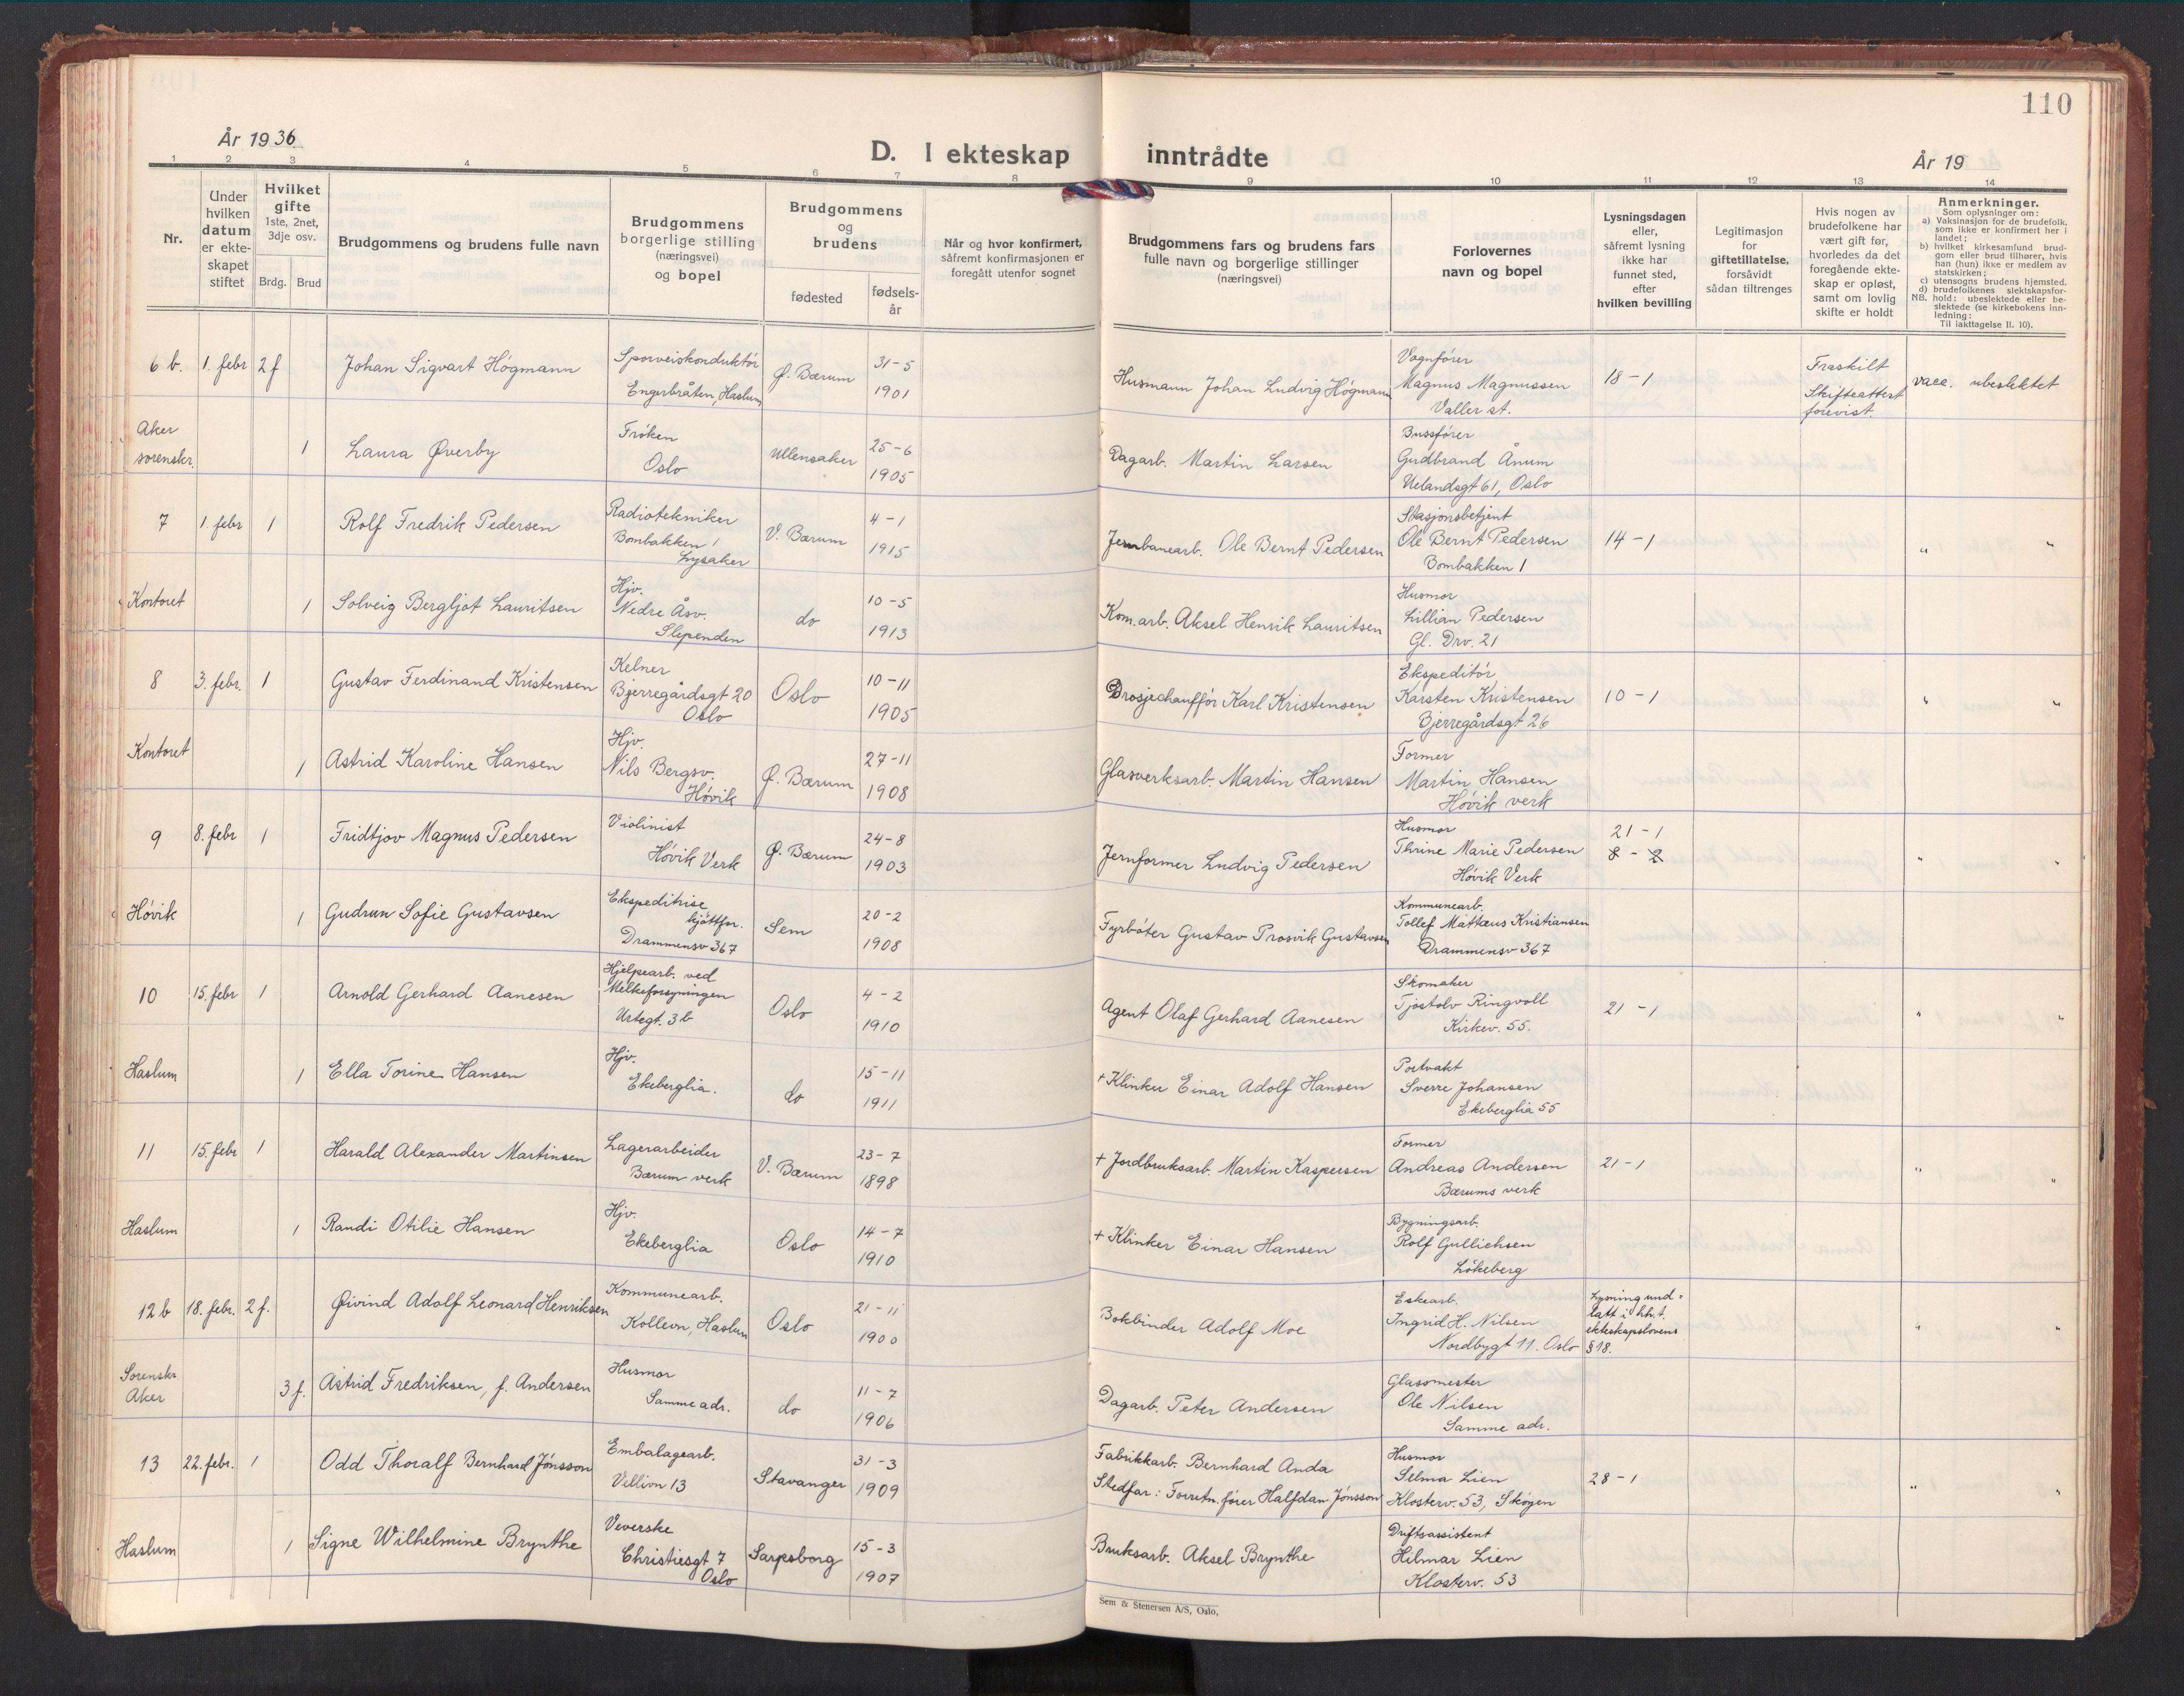 110
År 1936
D. I ekteskap inntrådte
År 19
1 2 3 4 5 6 7 8 9 10 11 12 13 14
Nr.
Under hvilken datum er ekteskapet stiftet
Hvilket gifte 1ste, 2net, 3dje osv.
Brdg. Brud
Brudgommens og brudens fulle navn
Brudgommens borgerlige stilling (næringsvei) og bopel
Brudgommens og brudens
fødested
fødselsår
Når og hvor konfirmert, såfremt konfirmasjonen er foregått utenfor sognet
Brudgommens fars og brudens fars fulle navn og borgerlige stillinger (næringsvei)
Forlovernes navn og bopel
Lysningsdagen eller, såfremt lysning ikke har funnet sted, efter hvilken bevilling
Legitimasjon for giftetillatelse, forsåvidt sådan tiltrenges
Hvis nogen av brudefolkene har vært gift før, hvorledes da det foregående ekteskap er opløst, samt om lovlig skifte er holdt
Anmerkninger.
Som oplysninger om:
a) Vaksinasjon for de brudefolk, som ikke er konfirmert her i landet;
b) hvilket kirkesamfund brudgom eller brud tilhører, hvis han (hun) ikke er medlem av statskirken;
c) utensogns brudens hjemsted.
d) brudefolkenes slektskapsforhold: ubeslektede eller beslektede (se kirkebokens innledning:
NB.
Til iakttagelse II. 10).
6 b. 1. febr 2 f Johan Sigvart Høgmann Sporveiskonduktør Engerbråten, Haslum Ø. Bærum 31-5 1901 Husmann Johan Ludvig Høgmann Vognfører Magnus Magnussen Valler st. 18-1 Fraskilt Skifteattest forevist. vacc. ubeslektet
Aker sorenskr. 1 Laura Øverby Frøken Oslo Ullensaker 25-6 1905 Dagarb. Martin Larsen Bussfører Gudbrand Ånum Uelandsgt 61, Oslo
7 1. febr 1 Rolf Fredrik Pedersen Radiotekniker Bombakken 1 Lysaker V. Bærum 4-1 1915 Jernbanearb. Ole Bernt Pedersen Stasjonsbetjent Ole Bernt Pedersen Bombakken 1 14-1 " "
Kontoret 1 Solveig Bergljot Lauritsen Hjv. Nedre Åsv. Slependen do 10-5 1913 Kom.arb. Aksel Henrik Lauritsen Husmor Lillian Pedersen Gl. Drv. 21
8 3. febr. 1 Gustav Ferdinand Kristensen Kelner Bjerregårdsgt 20 Oslo Oslo 10-11 1905 Drosjechauffør Karl Kristensen Ekspeditør Karsten Kristensen Bjerregårdsgt 26 10-1 " "
Kontoret 1 Astrid Karoline Hansen Hjv. Nils Bergsv. Høvik Ø. Bærum 27-11 1908 Glasverksarb. Martin Hansen Former Martin Hansen Høvik verk
9 8. febr 1 Fridtjov Magnus Pedersen Violinist Høvik Verk Ø. Bærum 24-8 1903 Jernformer Ludvig Pedersen Husmor Thrine Marie Pedersen Høvik Verk 21-1 8-2 " "
Høvik 1 Gudrun Sofie Gustavsen Ekspeditrise kjøttfor. Drammensv 367 Sem 20-2 1908 Fyrbøter Gustav Prosvik Gustavsen Kommunearb. Tollef Mattæus Kristiansen Drammensv 367
10 15. febr 1 Arnold Gerhard Aanesen Hjelpearb. ved Melkeforsyningen Urtegt. 3 b Oslo 4-2 1910 Agent Olaf Gerhard Aanesen Skomaker Tjostolv Ringvoll Kirkev. 55. 21-1 " "
Haslum 1 Ella Torine Hansen Hjv. Ekeberglia. do 15-11 1911 + Klinker Einar Adolf Hansen Portvakt Sverre Johansen Ekeberglia 55
11 15. febr 1 Harald Alexander Martinsen Lagerarbeider Bærum verk V. Bærum 23-7 1898 + Jordbruksarb. Martin Kaspersen Former Andreas Andersen Bærums verk 21-1 " "
Haslum 1 Randi Otilie Hansen Hjv. Ekeberglia Oslo 14-7 1910 + Klinker Einar Hansen Bygningsarb. Rolf Gullichsen Løkeberg
12 b 18. febr. 2 f. Øivind Adolf Leonard Henriksen Kommunearb. Kollevn, Haslum Oslo 21-11 1900 Bokbinder Adolf Moe Eskearb. Ingrid H. Nilsen Nordbygt 11. Oslo Lysning undlatt i hht. ekteskapslovens § 18. " "
Sorenskr. Aker 3 f. Astrid Fredriksen, f. Andersen Husmor Samme adr. do 11-7 1906 Dagarb. Peter Andersen Glassmester Ole Nilsen Samme adr.
13 22. febr. 1 Odd Thoralf Bernhard Jønsson Embalagearb. Villivn 13 Stavanger 31-3 1909 Fabrikkarb. Bernhard Anda Stedfar: Forretn.fører Halfdan Jønsson Husmor Selma Lien Klosterv. 53, Skøyen 28-1 " "
Haslum 1 Signe Wilhelmine Brynthe Veverske Christiesgt 7 Oslo Sarpsborg 15-3 1907 Bruksarb. Aksel Brynthe Driftsassistent Hilmar Lien Klosterv. 53
Sem & Stenersen A/S, Oslo,